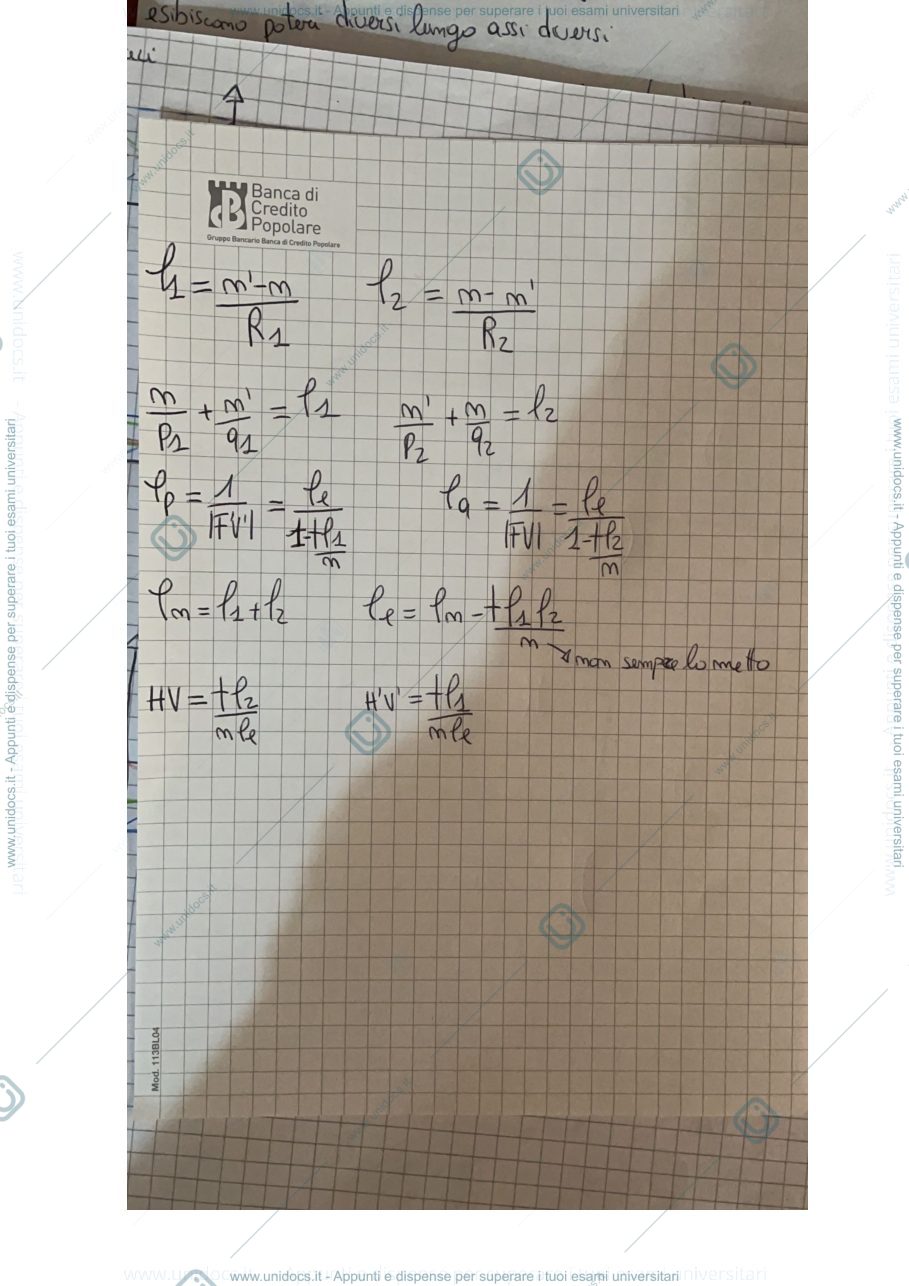 www.unidocs.it - Appunti e dispense per superare i tuoi esami universitari
esibiscono poteri diversi lungo assi diversi
Banca di
Credito
Popolare
Gruppo Bancario Banca di Credito Popolare
φ1 = (n'-n)/R1    φ2 = (n-n')/R2
n/P1 + n'/q1 = φ1    n'/P2 + n/q2 = φ2
φp = 1/|FV'| = φe/(1-tφ1/n)    φa = 1/|FV| = φe/(1-tφ2/n)
φm = φ1+φ2    φe = φm - tφ1φ2/n
non sempre lo metto
HV = tφ2/nφe    H'V' = tφ1/nφe
Mod. 113BL04
www.unidocs.it - Appunti e dispense per superare i tuoi esami universitari
www.unidocs.it - Appunti e dispense per superare i tuoi esami universitari
www.unidocs.it - Appunti e dispense per superare i tuoi esami universitari